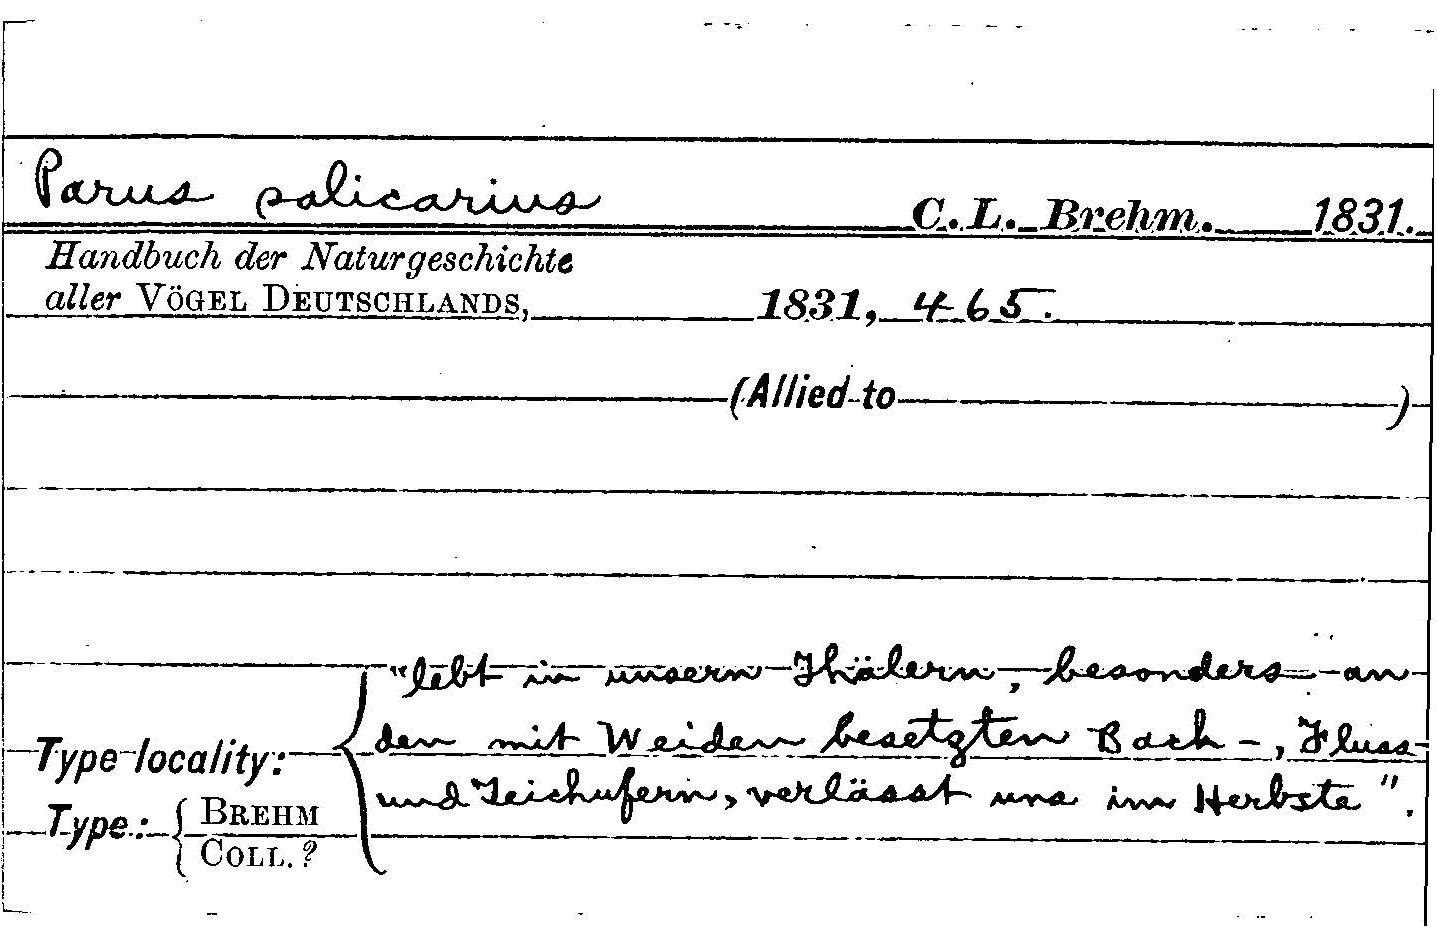 Parus salicarius C. L. Brehm. 1831.
Handbuch der Naturgeschichte
aller Vögel Deutschlands, 1831, 465.
(Allied to )
"lebt in unsern Thälern, besonders an
den mit Weiden besetzten Bach-, Fluss-
Type locality:
und Teichufern, verlässt uns im Herbste".
Type: Brehm
Coll.?